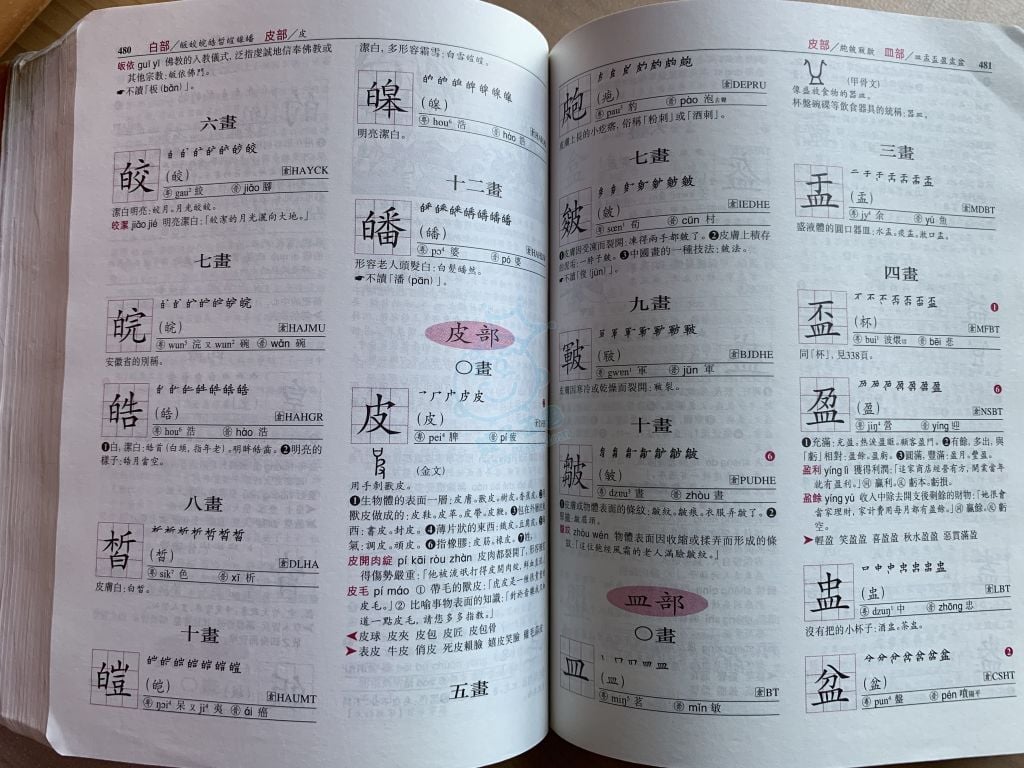 480 白部/皈皎皖皓皙皚皞皤 皮部/皮
皈依 guī yī 佛教的入教儀式，泛指虔誠地信奉佛教或
其他宗教：皈依佛門。
☛不讀「板 (bǎn)」。
六畫
皎
(皎)
倉HAYCK
粵gau² 絞 普jiǎo 腳
潔白明亮：皎月。月光皎皎。
皎潔 jiǎo jié 明亮潔白：「皎潔的月光灑向大地。」
七畫
皖
(皖)
倉HAJMU
粵wun² 浣 又 wun⁵ 普wǎn 碗
安徽省的別稱。
皓
(皓)
倉HAHGR
粵hou⁶ 浩 普hào 浩
❶白，潔白：皓首(白頭，指年老)。明眸皓齒。❷明亮的
樣子：皓月當空。
八畫
皙
(皙)
倉DLHA
粵sik⁷ 色 普xī 析
皮膚白：白皙。
十畫
皚
(皑)
倉HAUMT
粵ŋɔi⁴ 呆 又 ji⁴ 夷 普ái 癌
潔白，多形容霜雪：白雪皚皚。
皞
(皞)
粵hou⁶ 浩 普hào 浩
明亮潔白。
十二畫
皤
(皤)
粵pɔ⁴ 婆 普pó 婆
形容老人頭髮白：白髮皤然。
☛不讀「潘 (pān)」。
皮部
〇畫
皮
(皮)
粵pei⁴ 脾 普pí 疲
(金文)
用手剝獸皮。
❶生物體的表面一層：皮膚。獸皮。樹皮。
獸皮做成的：皮鞋。皮革。皮帶。皮靴。❸包在外面
西：書皮。封皮。❹薄片狀的東西
氣：調皮。頑皮。❻指橡膠：皮筋。橡皮。❼姓。
皮開肉綻 pí kāi ròu zhàn 皮肉都裂開了，形容被
得傷勢嚴重：「他被流氓打得皮開肉綻，鮮血
皮毛 pí máo ① 帶毛的獸皮：「虎皮是一種
皮毛。」② 比喻事物表面的知識：「對於音樂
道一點皮毛，請您多多指教。」
➤皮球 皮夾 皮包 皮匠 皮包骨
➤表皮 牛皮 俏皮 死皮賴臉 嬉皮笑臉 雞毛蒜皮
五畫
皮部/皰皴皸皺 皿部/皿盂盃盈盅盆 481
皰
(疱)
倉DEPRU
粵pau³ 豹 普pào 泡去聲
皮膚上長的小疙瘩，俗稱「粉刺」或「酒刺」。
七畫
皴
(皴)
倉IEDHE
粵sœn¹ 荀 普cūn 村
❶皮膚因受凍而裂開：凍得兩手都皴了。❷皮膚上積存
的泥垢：一脖子皴。❸中國畫的一種技法：皴法。
☛不讀「俊 (jùn)」。
九畫
皸
(皲)
倉BJDHE
粵gwɐn¹ 軍 普jūn 軍
皮膚因寒冷或乾燥而裂開：皸裂。
十畫
皺
(皱)
❻
倉PUDHE
粵dzɐu³ 晝 普zhòu 晝
❶皮膚或物體表面的條紋：皺紋。皺痕。衣服弄皺了。❷
皺眉頭。
皺紋 zhòu wén 物體表面因收縮或揉弄而形成的條
紋：「這位飽經風霜的老人滿臉皺紋。」
皿部
〇畫
皿
(皿)
倉BT
粵miŋ⁵ 茗 普mǐn 敏
(甲骨文)
像盛放食物的器皿。
杯盤碗碟等飲食器具的統稱：器皿。
三畫
盂
(盂)
倉MDBT
粵jy⁴ 余 普yú 魚
盛液體的圓口器皿：水盂。痰盂。漱口盂。
四畫
盃
(杯)
❶
倉MFBT
粵bui¹ 普bēi 悲
同「杯」，見338頁。
盈
(盈)
❻
倉NSBT
粵jiŋ⁴ 營 普yíng 迎
❶充滿：充盈。熱淚盈眶。顧客盈門。❷有餘，多出，與
「虧」相對：盈餘。盈虧。❸圓滿，豐滿：盈月。豐盈。
盈利 yíng lì 獲得利潤：「這家商店經營有方，開業當年
就有盈利。」同 贏利。反 虧本。虧損。
盈餘 yíng yú 收入中除去開支後剩餘的財物：「她很會
當家理財，家計費用每月都有盈餘。」同 贏餘。反 虧
空。
➤輕盈 笑盈盈 喜盈盈 秋水盈盈 惡貫滿盈
盅
(盅)
倉LBT
粵dzuŋ¹ 中 普zhōng 忠
沒有把的小杯子：酒盅。茶盅。
盆
(盆)
❷
倉CSHT
粵pun⁴ 盤 普pén 噴陽平